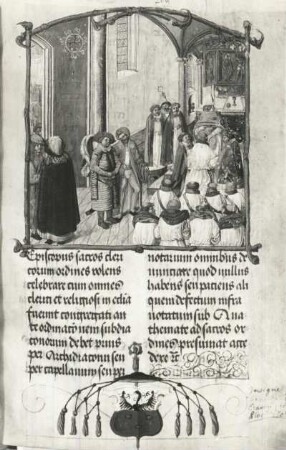 Episcopus sacros cleri
corum ordines volens
celebrare cum omnes
electi et religiosi in ecclia
fuerint congregati an
te ordinatōnem subdia
conorum debet prius
per Archidiaconum seu
per capellanum seu per
notarium omnibus de
nunciare quod nullus
habens seu paciens ali
quem defectum infra
notatum sub Ana
themate ad sacros or
dines presumat acce
dere